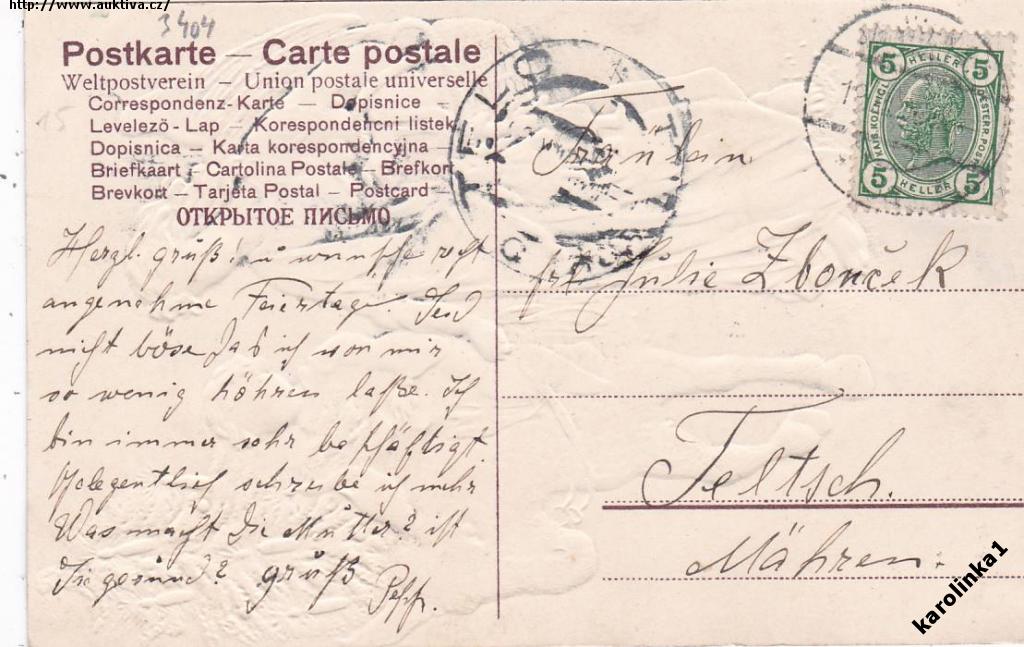 http://www.auktiva.cz/
3404
15
Postkarte — Carte postale
Weltpostverein — Union postale universelle
Correspondenz-Karte — Dopisnice —
Levelező-Lap — Korespondencni listek
Dopisnica — Karta korespondencyjna —
Briefkaart — Cartolina Postale — Brefkort
Brevkort — Tarjeta Postal — Postcard —
ОТКРЫТОЕ ПИСЬМО
Herzl. grüß! u wünsche recht
angenehme Feiertage. Seid
nicht böse daß ich von mir
so wenig höhren laße. Ich
bin immer sehr beschäftigt.
Gelegentlich schreibe ich mehr
Was macht die Mutter? ist
Sie gesünd? grüß
Fräulein
Julie Zbonček
Teltsch.
Mähren.
5 HELLER 5
KAIS. KOENIGL. OESTERR. POST
5 HELLER 5
TELTSCH
karolinka1